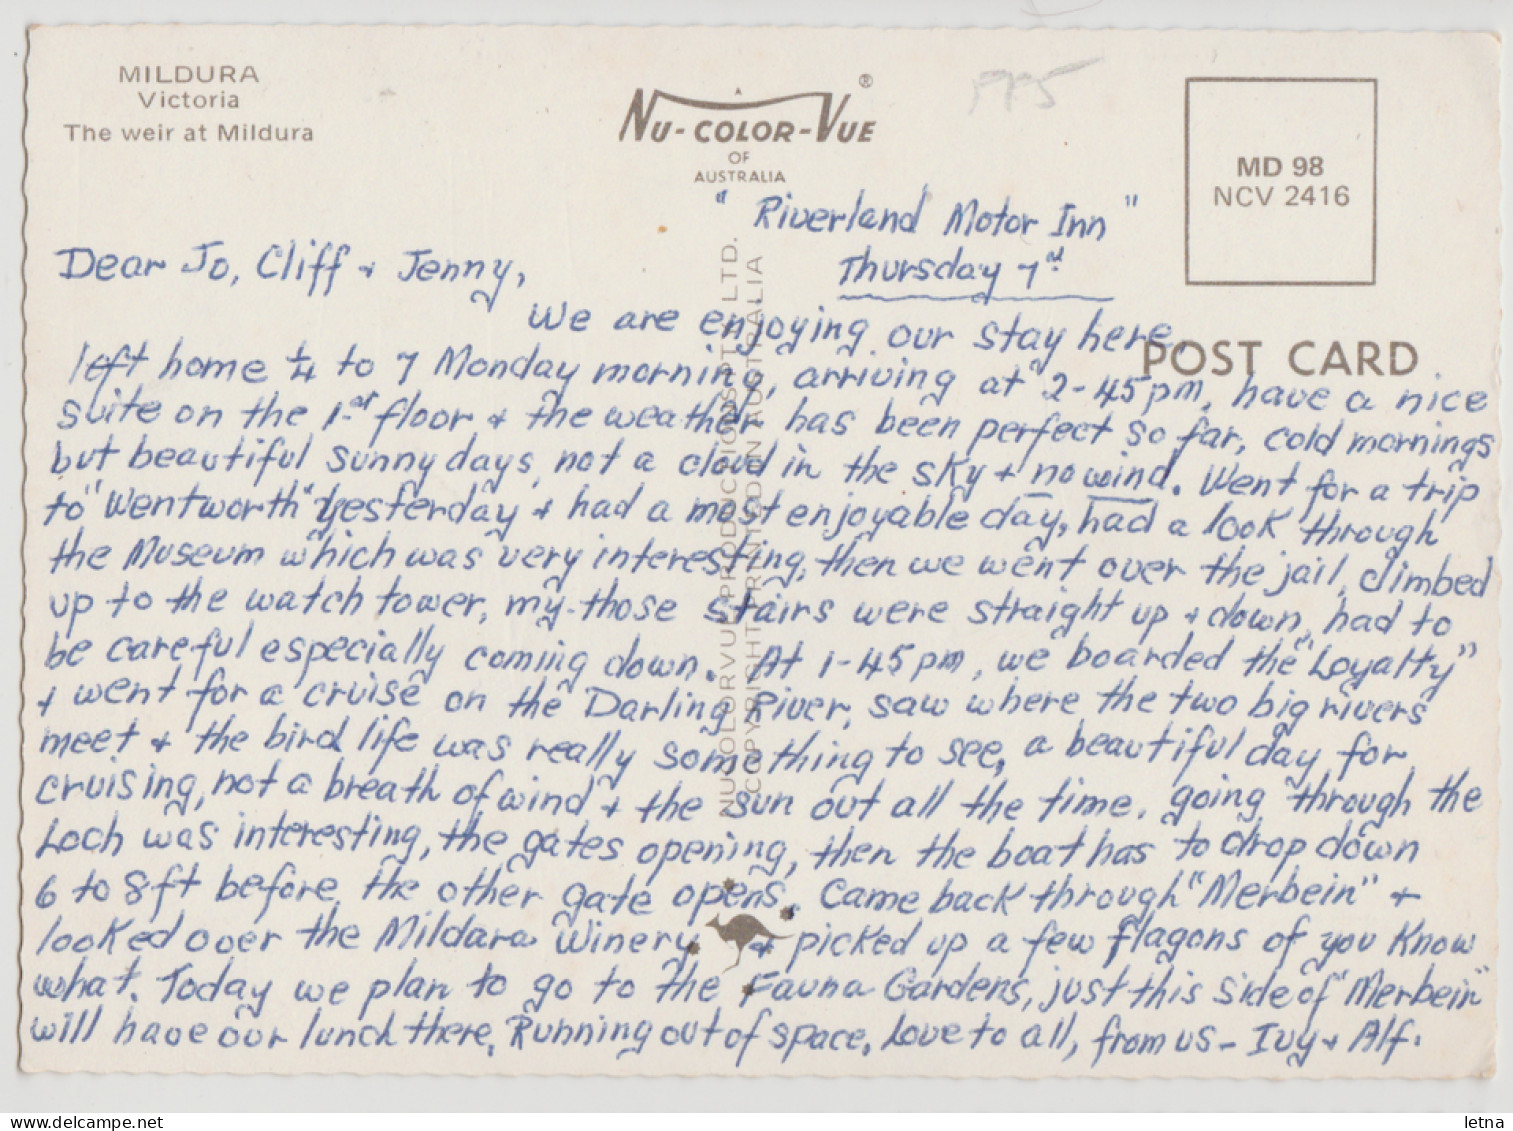 MILDURA
Victoria
The weir at Mildura
A
NU-COLOR-VUE ®
OF
AUSTRALIA
PP5
MD 98
NCV 2416
POST CARD
NUCOLORVUE PRODUCTIONS PTY. LTD.
COPYRIGHT PRINTED IN AUSTRALIA
" Riverland Motor Inn "
Thursday 7th
Dear Jo, Cliff + Jenny,
We are enjoying our stay here,
left home ¼ to 7 Monday morning, arriving at 2-45pm, have a nice
suite on the 1st floor + the weather has been perfect so far, cold mornings
but beautiful sunny days, not a cloud in the sky + no wind. Went for a trip
to "Wentworth" yesterday + had a most enjoyable day, had a look through
the Museum which was very interesting, then we went over the jail, climbed
up to the watch tower, my those stairs were straight up + down, had to
be careful especially coming down. At 1-45pm, we boarded the "Loyalty"
+ went for a cruise on the Darling River, saw where the two big rivers
meet + the bird life was really something to see, a beautiful day for
cruising, not a breath of wind + the sun out all the time. going through the
Loch was interesting, the gates opening, then the boat has to drop down
6 to 8ft before the other gate opens. Came back through "Merbein" +
looked over the Mildara Winery + picked up a few flagons of you know
what. Today we plan to go to the Fauna Gardens, just this side of "Merbein"
will have our lunch there. Running out of space, Love to all, from us - Ivy + Alf.
delcampe.net
letna